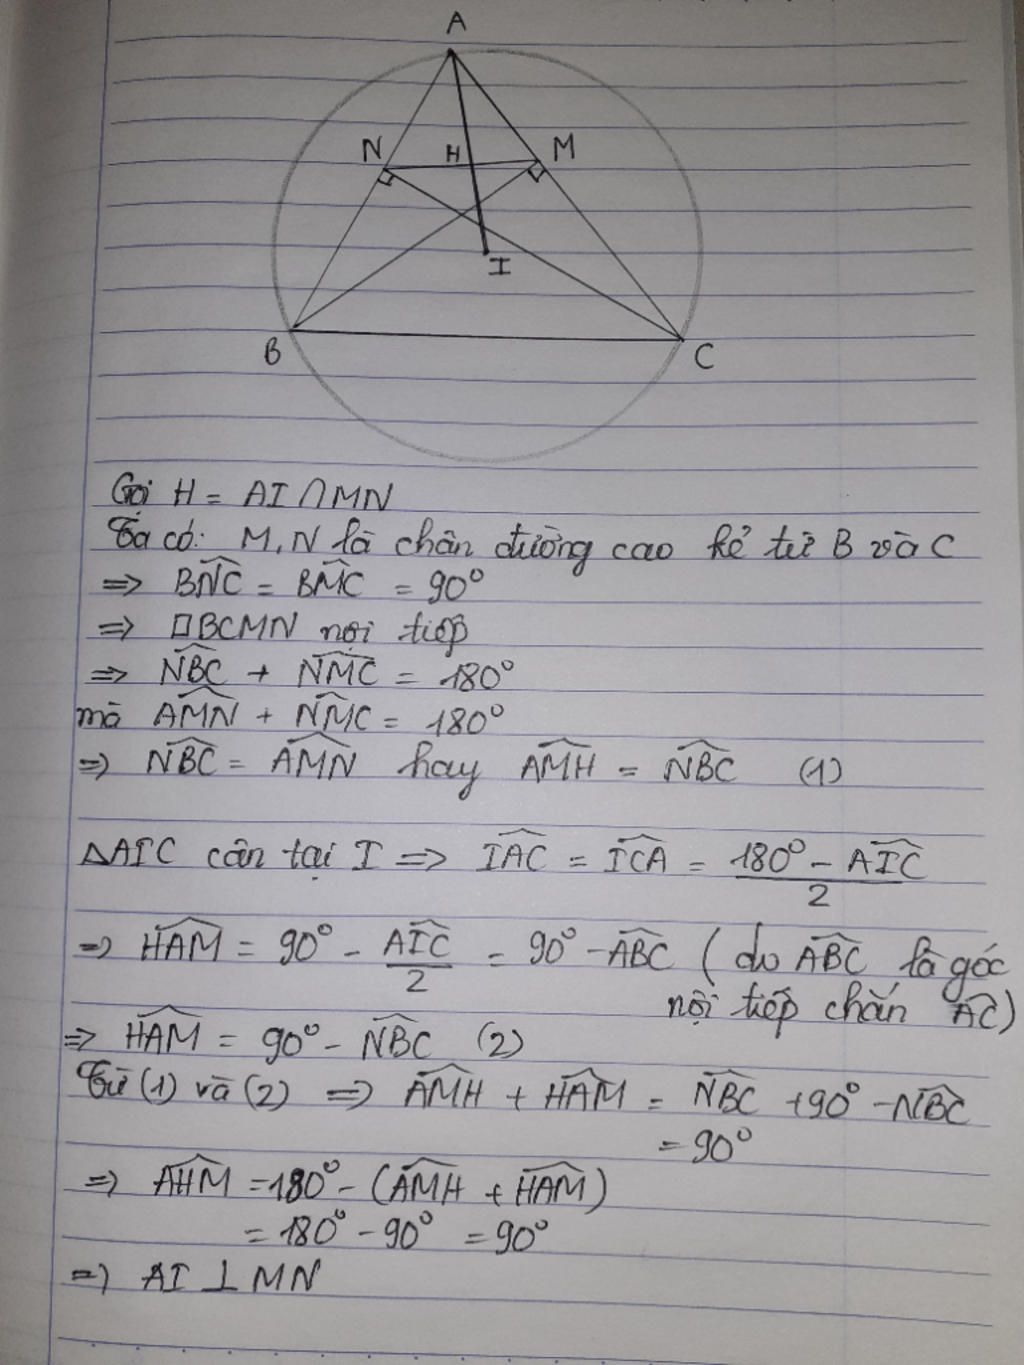 A
N
H
M
I
B
C
Gọi H = AI ∩ MN
Ta có: M, N là chân đường cao kẻ từ B và C
=> BNC = BMC = 90°
=> □BCMN nội tiếp
=> NBC + NMC = 180°
mà AMN + NMC = 180°
=> NBC = AMN hay AMH = NBC (1)
ΔAIC cân tại I => IAC = ICA = (180° - AIC)/2
=> HAM = 90° - AIC/2 = 90° - ABC (do ABC là góc
nội tiếp chắn AC)
=> HAM = 90° - NBC (2)
Từ (1) và (2) => AMH + HAM = NBC + 90° - NBC
= 90°
=> AHM = 180° - (AMH + HAM)
= 180° - 90° = 90°
=> AI ⊥ MN